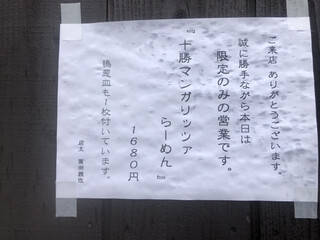 ご来店 ありがとうございます。
誠に勝手ながら本日は
限定のみの営業です。
『十勝マンガリッツァ
らーめん』
1680円
も1枚付いています。
店主